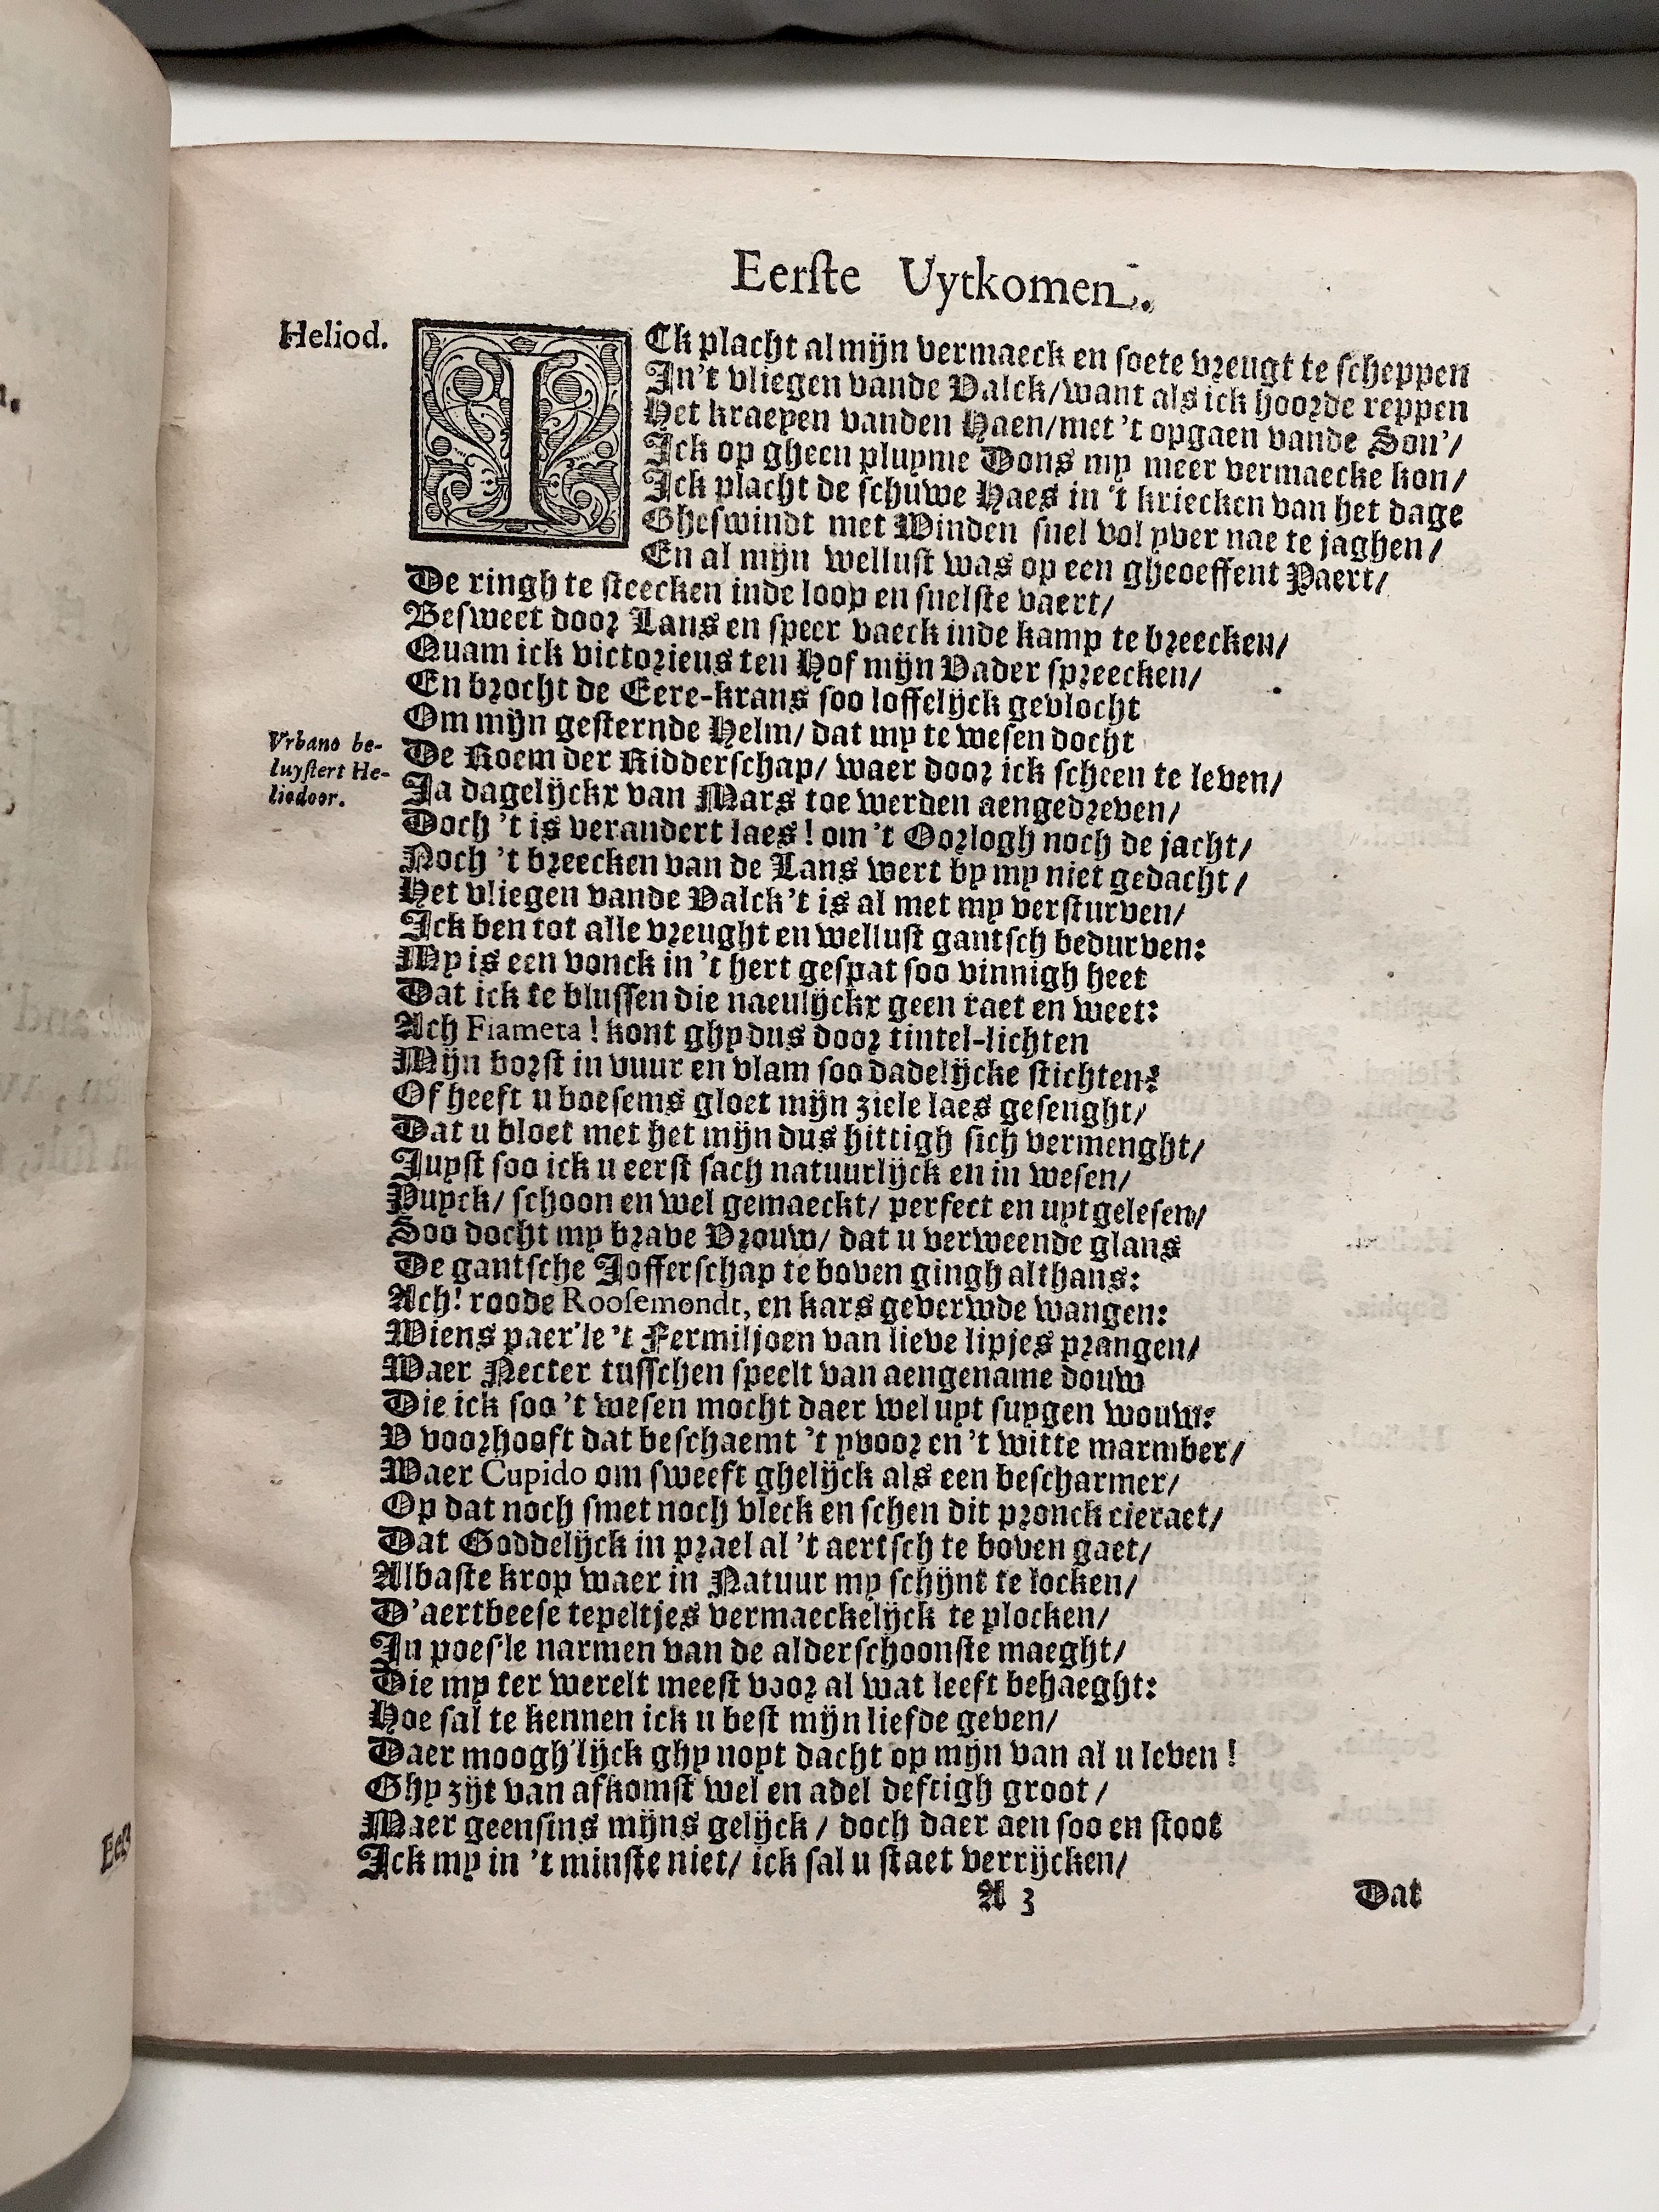 Eerste Uytkomen.
Heliod.
ICk placht al mijn vermaeck en soete vreugt te scheppen
In't vliegen vande Valck/want als ick hoorde reppen
Het kraeyen vanden Haen/met 't opgaen vande Son'/
Ick op gheen pluyme Dons my meer vermaecke kon/
Ick placht de schuwe Haes in 't kriecken van het dage
Gheswindt met Winden snel vol yver nae te jaghen/
En al mijn wellust was op een gheoeffent Paert/
De ringh te steecken inde loop en snelste vaert/
Besweet door Lans en speer vaeck inde kamp te breecken/
Quam ick victorieus ten Hof mijn Vader spreecken/
En brocht de Eere-krans soo loffelijck gevlocht
Om mijn gesternde Helm/ dat my te wesen docht
Vrbano be-
luystert He-
liodoor.
De Roem der Ridderschap/ waer door ick scheen te leven/
Ja dagelijckx van Mars toe werden aengedreven/
Doch 't is verandert laes! om 't Oorlogh noch de jacht/
Noch 't breecken van de Lans wert by my niet gedacht/
Het vliegen vande Valck 't is al met my versturven/
Ick ben tot alle vreught en wellust gantsch bedurven:
My is een vonck in 't hert gespat soo vinnigh heet
Dat ick te blussen die naeulijckx geen raet en weet:
Ach Fiameta! kont ghy dus door tintel-lichten
Mijn borst in vuur en vlam soo dadelijcke stichten?
Of heeft u boesems gloet mijn ziele laes gesenght/
Dat u bloet met het mijn dus hittigh sich vermenght/
Juyst soo ick u eerst sach natuurlijck en in wesen/
Puyck/ schoon en wel gemaeckt/ perfect en uytgelesen/
Soo docht my brave Vrouw/ dat u verweende glans
De gantsche Jofferschap te boven gingh althans:
Ach! roode Roosemondt, en kars geverwde wangen:
Wiens paer'le 't Fermiljoen van lieve lipjes prangen/
Waer Necter tusschen speelt van aengename douw
Die ick soo 't wesen mocht daer wel uyt suygen wouw:
V voorhooft dat beschaemt 't yvoor en 't witte marmber/
Waer Cupido om sweeft ghelijck als een bescharmer/
Op dat noch smet noch vleck en schen dit pronck cieraet/
Dat Goddelijck in prael al 't aertsch te boven gaet/
Albaste krop waer in Natuur my schijnt te locken/
D'aertbeese tepeltjes vermaeckelijck te plocken/
In poes'le narmen van de alderschoonste maeght/
Die my ter werelt meest voor al wat leeft behaeght:
Hoe sal te kennen ick u best mijn liefde geven/
Daer moogh'lijck ghy noyt dacht op mijn van al u leven!
Ghy zijt van afkomst wel en adel deftigh groot/
Maer geensins mijns gelijck/ doch daer aen soo en stoot
Ick my in 't minste niet/ ick sal u staet verrijcken/
A 3
Dat